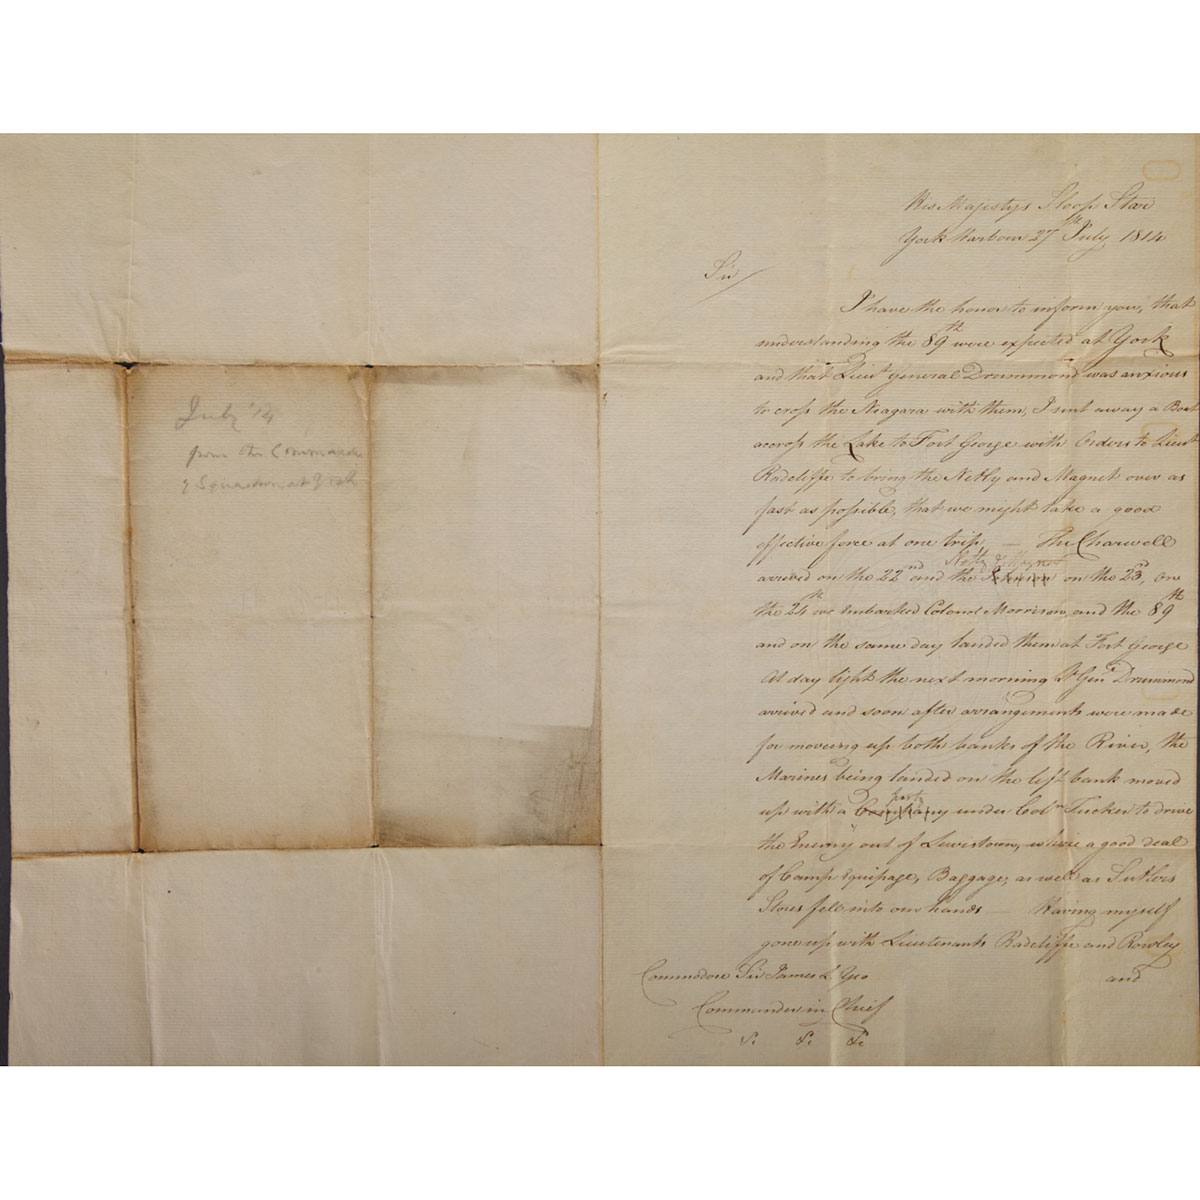 July '14
from the Commander
of Squadron at York
His Majestys Sloop Star
York Harbour 27th July 1814
Sir
I have the honor to inform you, that
understanding the 89th were expected at York
and that Lieut General Drummond was anxious
to cross the Niagara with them, I sent away a Boat
accross the Lake to Fort George with Orders to Lieut
Radcliffe to bring the Netly and Magnet over as
fast as possible, that we might take a good
effective force at one trip, — The Charwell
Netly & Magnet
arrived on the 22nd and the on the 23d, On
the 24th we Embarked Colonel Morrison, and the 89th
and on the same day landed them at Fort George
At day light the next morning Lt Genl Drummond
arrived and soon after arrangements were made
for moveing up both banks of the River, the
Marines being landed on the left bank moved
party
up with a Company under Coln Tucker to drive
the Enemy out of Lewistown, where a good deal
of Camp Equipage, Baggage, as well as Sutlers
Stores fell into our hands — Having myself
gone up with Lieutenants Radcliffe and Rowley
and
Commodore Sir James L Yeo
Commander in Chief
&c &c &c